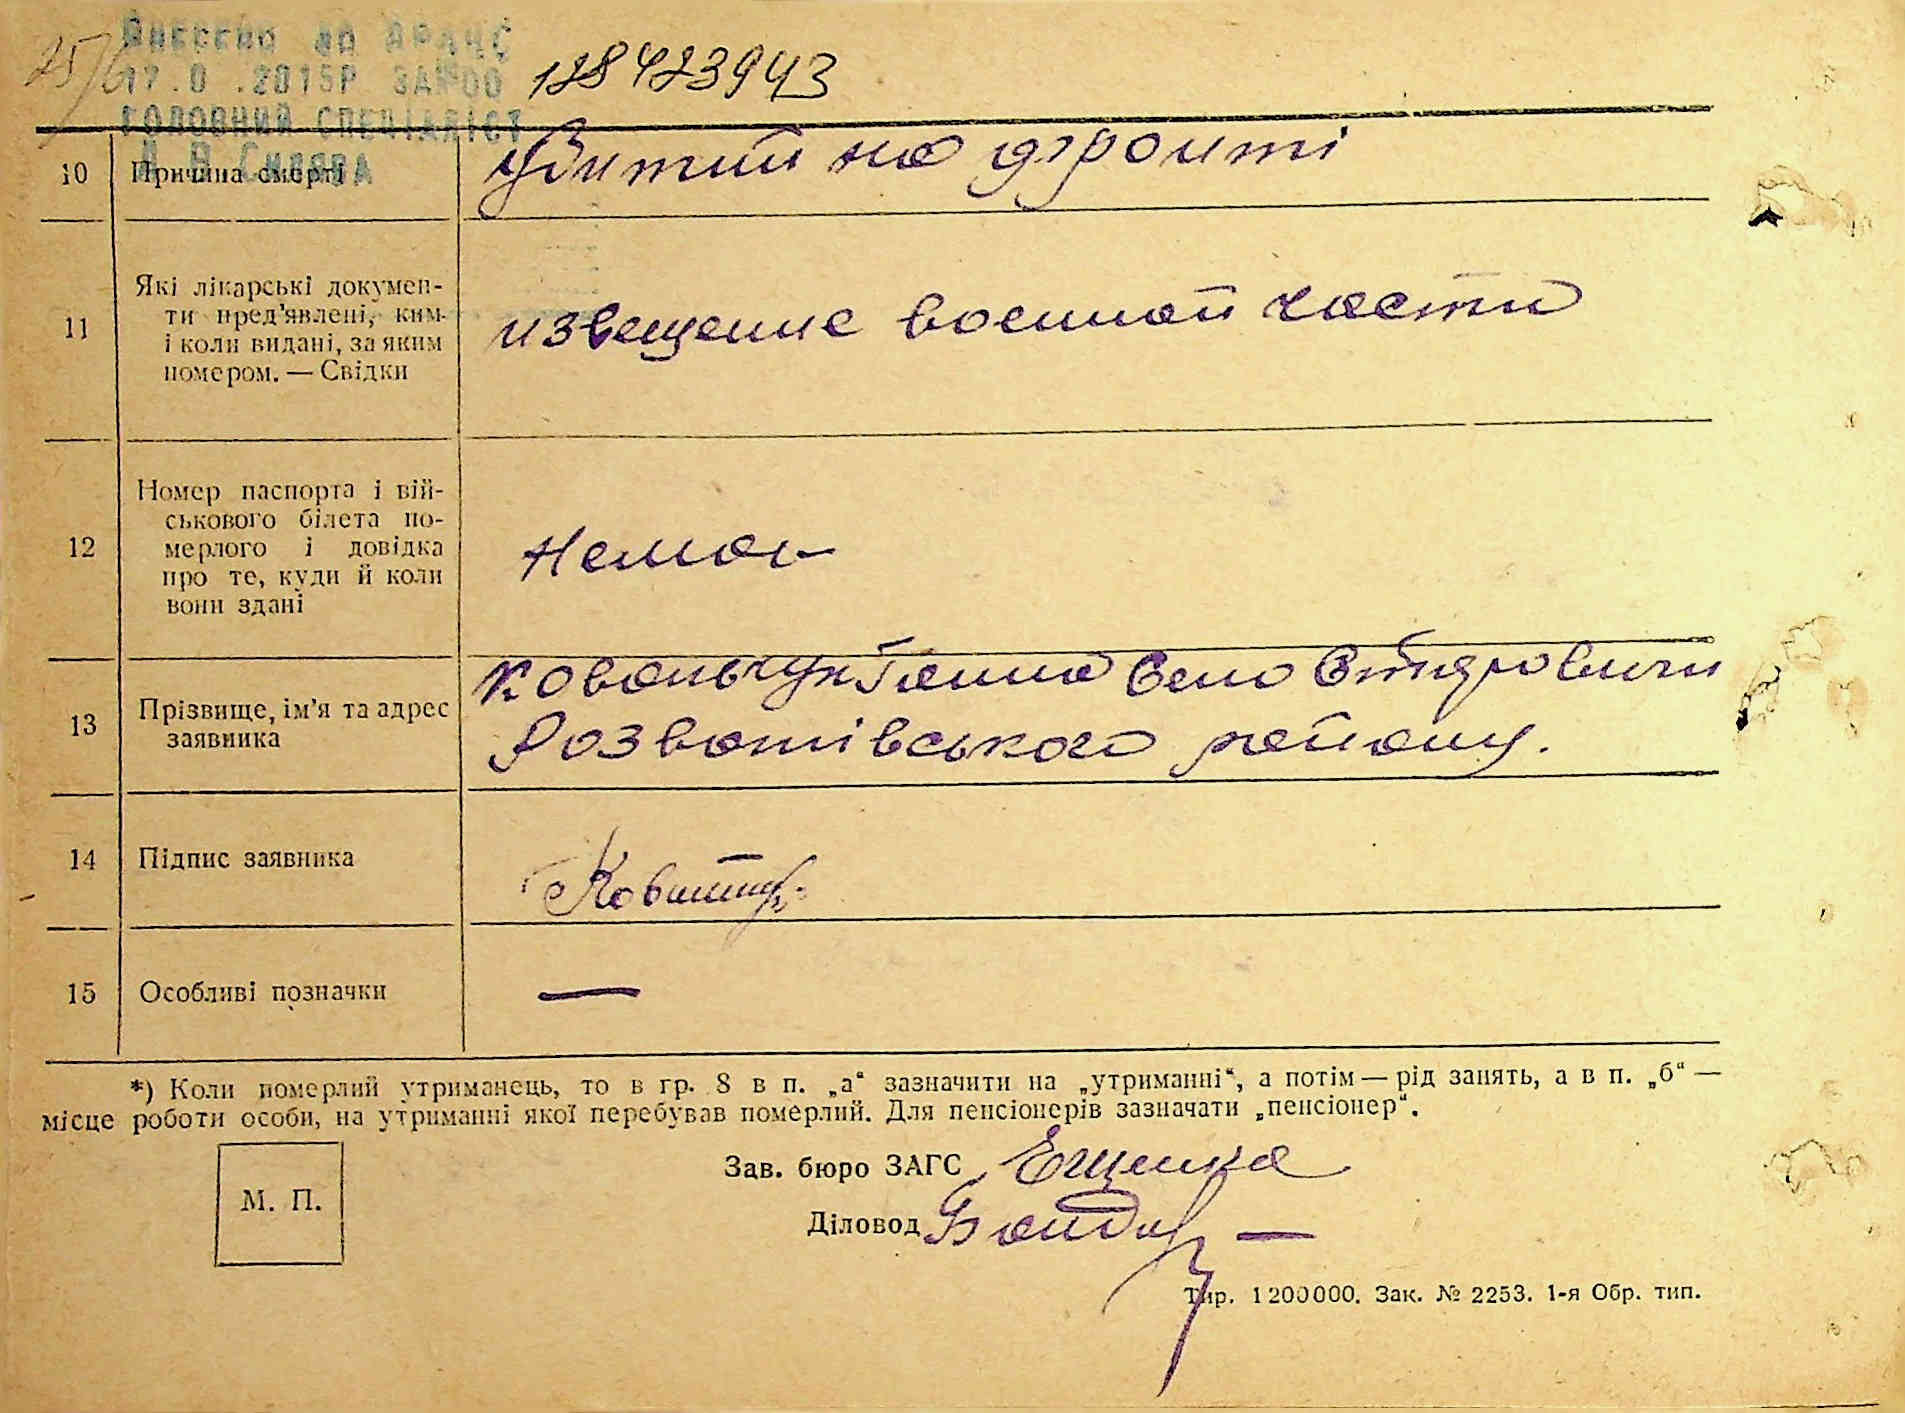 Внесено до ДРАЦС
17.0 .2015Р ЗА№00
ГОЛОВНИЙ СПЕЦІАЛІСТ
128423943
10 Причина смерті
Убитий на фронті
11 Які лікарські докумен-
ти пред'явлені, ким
і коли видані, за яким
номером. — Свідки
извещение военной части
12 Номер паспорта і вій-
ськового білета по-
мерлого і довідка
про те, куди й коли
вони здані
Немає
13 Прізвище, ім'я та адрес
заявника
Ковальчук Ганна Село
Розважівського району.
14 Підпис заявника
15 Особливі позначки
—
*) Коли померлий утриманець, то в гр. 8 в п. „а“ зазначити на „утриманні“, а потім — рід занять, а в п. „б“ —
місце роботи особи, на утриманні якої перебував померлий. Для пенсіонерів зазначати „пенсіонер“.
Зав. бюро ЗАГС Ещенко
М. П.
Діловод
Тир. 1200000. Зак. № 2253. 1-я Обр. тип.